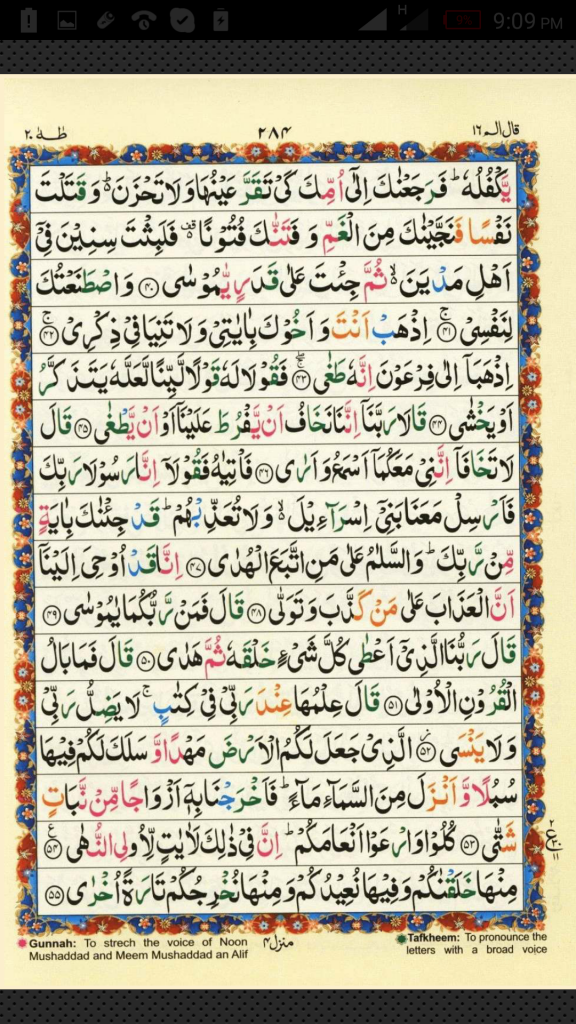 H 9% 9:09 PM
قال الم ١٦ ٢٨٤ طٰهٰ ٢٠
يَّكْفُلُهٗ ؕ فَرَجَعْنٰكَ اِلٰٓى اُمِّكَ كَىْ تَقَرَّ عَيْنُهَا وَلَا تَحْزَنَ ؕ وَقَتَلْتَ
نَفْسًا فَنَجَّيْنٰكَ مِنَ الْغَمِّ وَ فَتَنّٰكَ فُتُوْنًا ۫ فَلَبِثْتَ سِنِيْنَ فِىْٓ
اَهْلِ مَدْيَنَ ۙ ثُمَّ جِئْتَ عَلٰى قَدَرٍ يّٰمُوْسٰى ﴿۴۰﴾ وَاصْطَنَعْتُكَ
لِنَفْسِىْ ۚ ﴿۴۱﴾ اِذْهَبْ اَنْتَ وَاَخُوْكَ بِاٰيٰتِىْ وَلَا تَنِيَا فِىْ ذِكْرِىْ ۚ ﴿۴۲﴾
اِذْهَبَآ اِلٰى فِرْعَوْنَ اِنَّهٗ طَغٰى ۖ ۚ ﴿۴۳﴾ فَقُوْلَا لَهٗ قَوْلًا لَّيِّنًا لَّعَلَّهٗ يَتَذَكَّرُ
اَوْ يَخْشٰى ﴿۴۴﴾ قَالَا رَبَّنَآ اِنَّنَا نَخَافُ اَنْ يَّفْرُطَ عَلَيْنَآ اَوْ اَنْ يَّطْغٰى ﴿۴۵﴾ قَالَ
لَا تَخَافَآ اِنَّنِىْ مَعَكُمَآ اَسْمَعُ وَاَرٰى ﴿۴۶﴾ فَاْتِيٰهُ فَقُوْلَآ اِنَّا رَسُوْلَا رَبِّكَ
فَاَرْسِلْ مَعَنَا بَنِىْٓ اِسْرَآءِيْلَ ۙ وَلَا تُعَذِّبْهُمْ ؕ قَدْ جِئْنٰكَ بِاٰيَةٍ
مِّنْ رَّبِّكَ ؕ وَالسَّلٰمُ عَلٰى مَنِ اتَّبَعَ الْهُدٰى ﴿۴۷﴾ اِنَّا قَدْ اُوْحِىَ اِلَيْنَآ
اَنَّ الْعَذَابَ عَلٰى مَنْ كَذَّبَ وَتَوَلّٰى ﴿۴۸﴾ قَالَ فَمَنْ رَّبُّكُمَا يٰمُوْسٰى ﴿۴۹﴾
قَالَ رَبُّنَا الَّذِىْٓ اَعْطٰى كُلَّ شَىْءٍ خَلْقَهٗ ثُمَّ هَدٰى ﴿۵۰﴾ قَالَ فَمَا بَالُ
الْقُرُوْنِ الْاُوْلٰى ﴿۵۱﴾ قَالَ عِلْمُهَا عِنْدَ رَبِّىْ فِىْ كِتٰبٍ ۚ لَا يَضِلُّ رَبِّىْ
وَلَا يَنْسَى ۖ ﴿۵۲﴾ الَّذِىْ جَعَلَ لَكُمُ الْاَرْضَ مَهْدًا وَّسَلَكَ لَكُمْ فِيْهَا
سُبُلًا وَّاَنْزَلَ مِنَ السَّمَآءِ مَآءً ؕ فَاَخْرَجْنَا بِهٖٓ اَزْوَاجًا مِّنْ نَّبَاتٍ
شَتّٰى ﴿۵۳﴾ كُلُوْا وَارْعَوْا اَنْعَامَكُمْ ؕ اِنَّ فِىْ ذٰلِكَ لَاٰيٰتٍ لِّاُولِى النُّهٰى ﴿۵۴﴾ ع
مِنْهَا خَلَقْنٰكُمْ وَفِيْهَا نُعِيْدُكُمْ وَمِنْهَا نُخْرِجُكُمْ تَارَةً اُخْرٰى ﴿۵۵﴾
٢ ع ٣٠ ١١
Gunnah: To strech the voice of Noon
Mushaddad and Meem Mushaddad an Alif
منزل ۴
Tafkheem: To pronounce the
letters with a broad voice